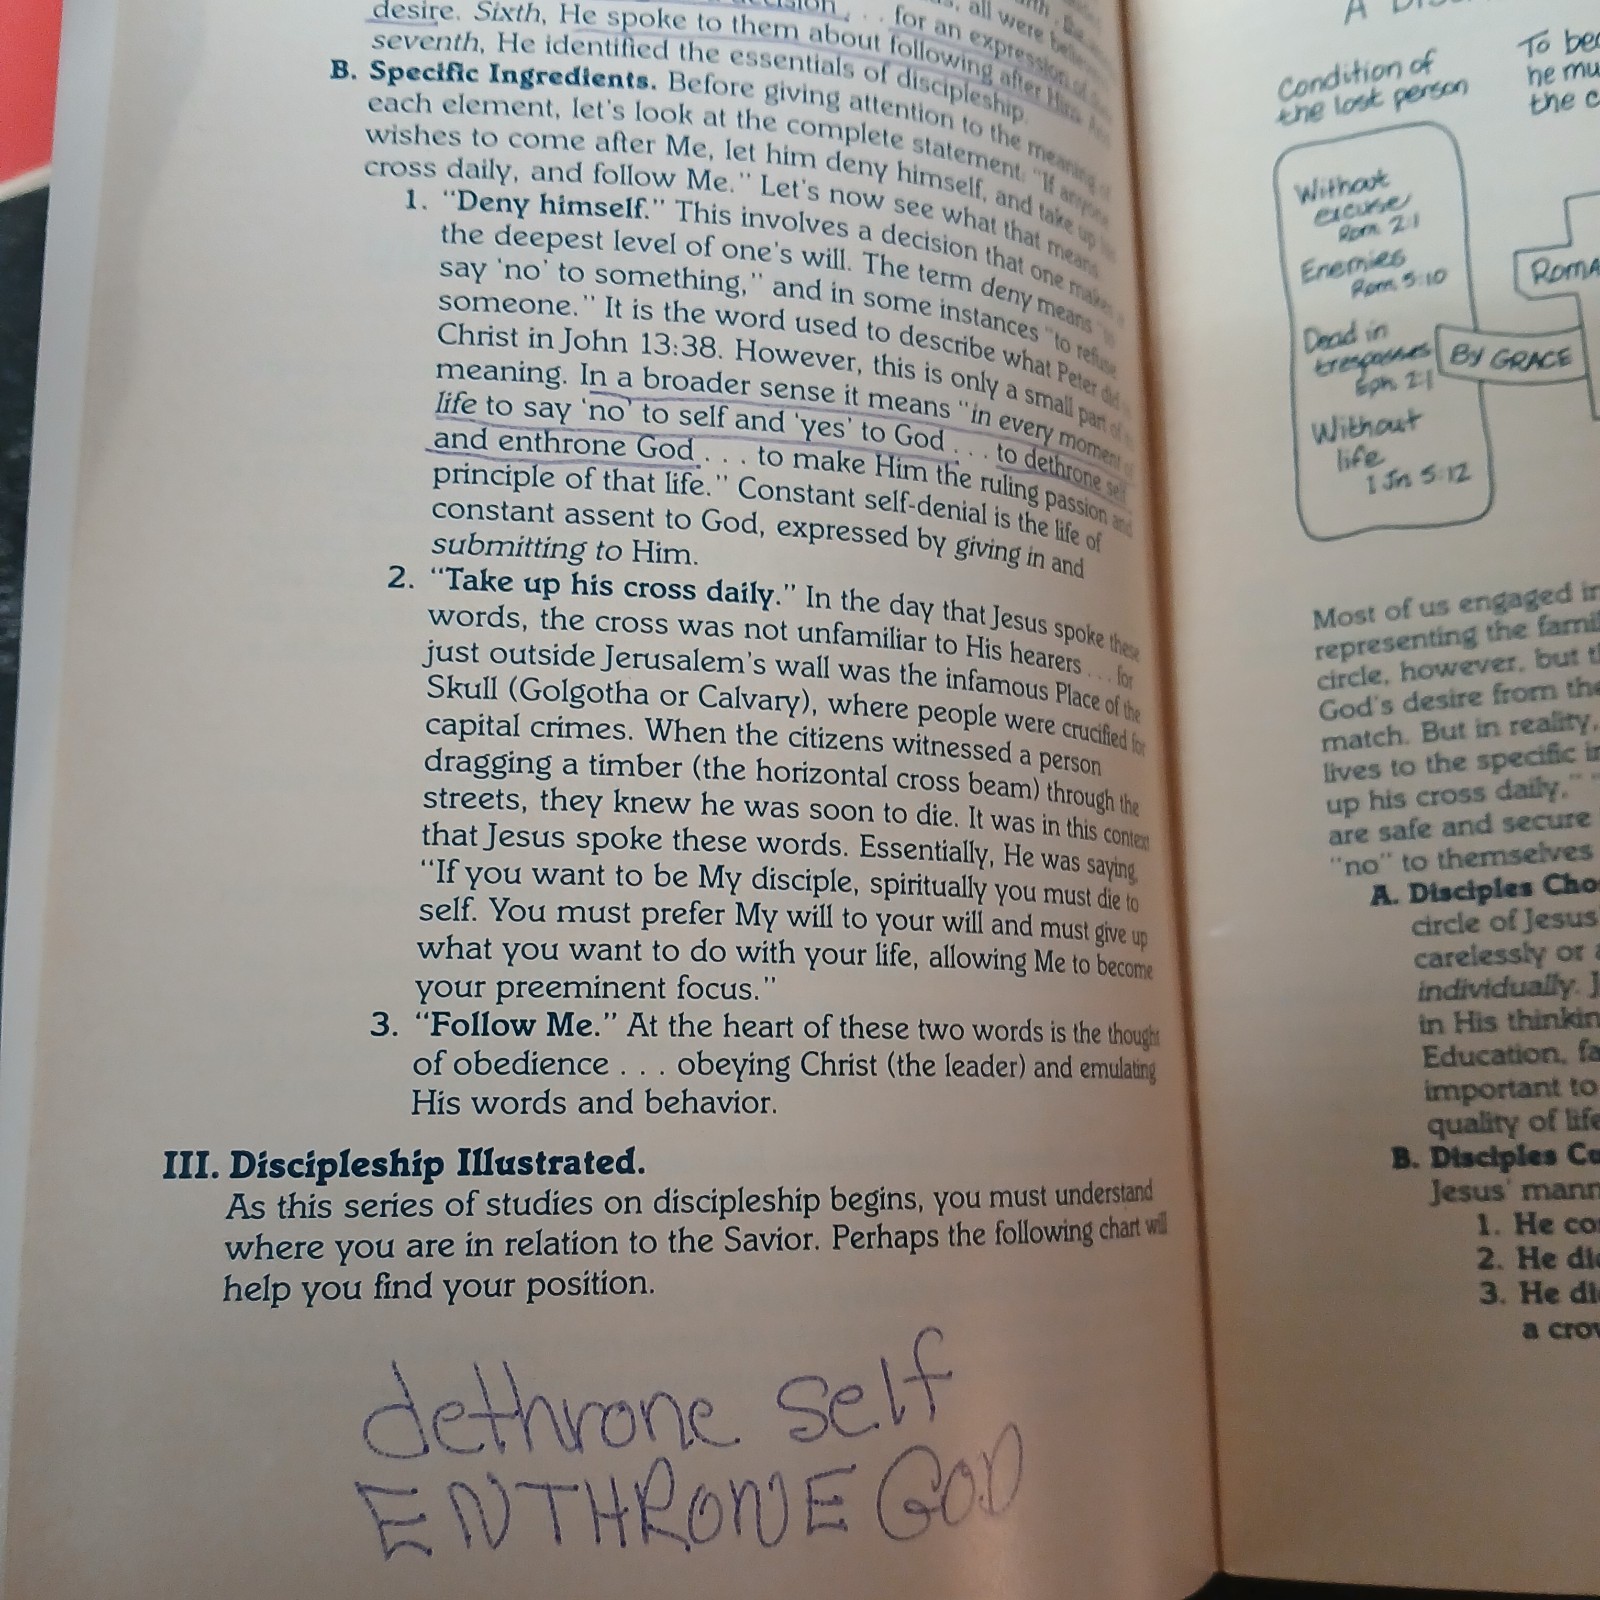 desire. Sixth, He spoke to them about following after Him. And
seventh, He identified the essentials of discipleship.
B. Specific Ingredients. Before giving attention to the meaning of
each element, let's look at the complete statement. "If anyone
wishes to come after Me, let him deny himself, and take up his
cross daily, and follow Me." Let's now see what that means.
1. "Deny himself." This involves a decision that one makes
the deepest level of one's will. The term deny means "to
say 'no' to something," and in some instances "to refuse
someone." It is the word used to describe what Peter did
Christ in John 13:38. However, this is only a small part of
meaning. In a broader sense it means "in every moment of
life to say 'no' to self and 'yes' to God . . . to dethrone self
and enthrone God . . . to make Him the ruling passion and
principle of that life." Constant self-denial is the life of
constant assent to God, expressed by giving in and
submitting to Him.
2. "Take up his cross daily." In the day that Jesus spoke these
words, the cross was not unfamiliar to His hearers . . . for
just outside Jerusalem's wall was the infamous Place of the
Skull (Golgotha or Calvary), where people were crucified for
capital crimes. When the citizens witnessed a person
dragging a timber (the horizontal cross beam) through the
streets, they knew he was soon to die. It was in this context
that Jesus spoke these words. Essentially, He was saying,
"If you want to be My disciple, spiritually you must die to
self. You must prefer My will to your will and must give up
what you want to do with your life, allowing Me to become
your preeminent focus."
3. "Follow Me." At the heart of these two words is the thought
of obedience . . . obeying Christ (the leader) and emulating
His words and behavior.
III. Discipleship Illustrated.
As this series of studies on discipleship begins, you must understand
where you are in relation to the Savior. Perhaps the following chart will
help you find your position.
dethrone self
ENTHRONE GOD
Condition of
the lost person
To
he
the
Without
excuse
Rom. 2:1
Enemies
Rom. 5:10
Dead in
trespasses
Eph. 2:1
Without
life
1 Jn 5:12
BY GRACE
Most of us engaged in
representing the
circle, however, but
God's desire from the
match. But in reality,
lives to the specific
up his cross daily,"
are safe and secure
"no" to themselves
A. Disciples
circle of Jesus'
carelessly or
individually.
in His
Education,
important to
quality of life
B. Disciples
Jesus'
1. He
2. He
3. He
a